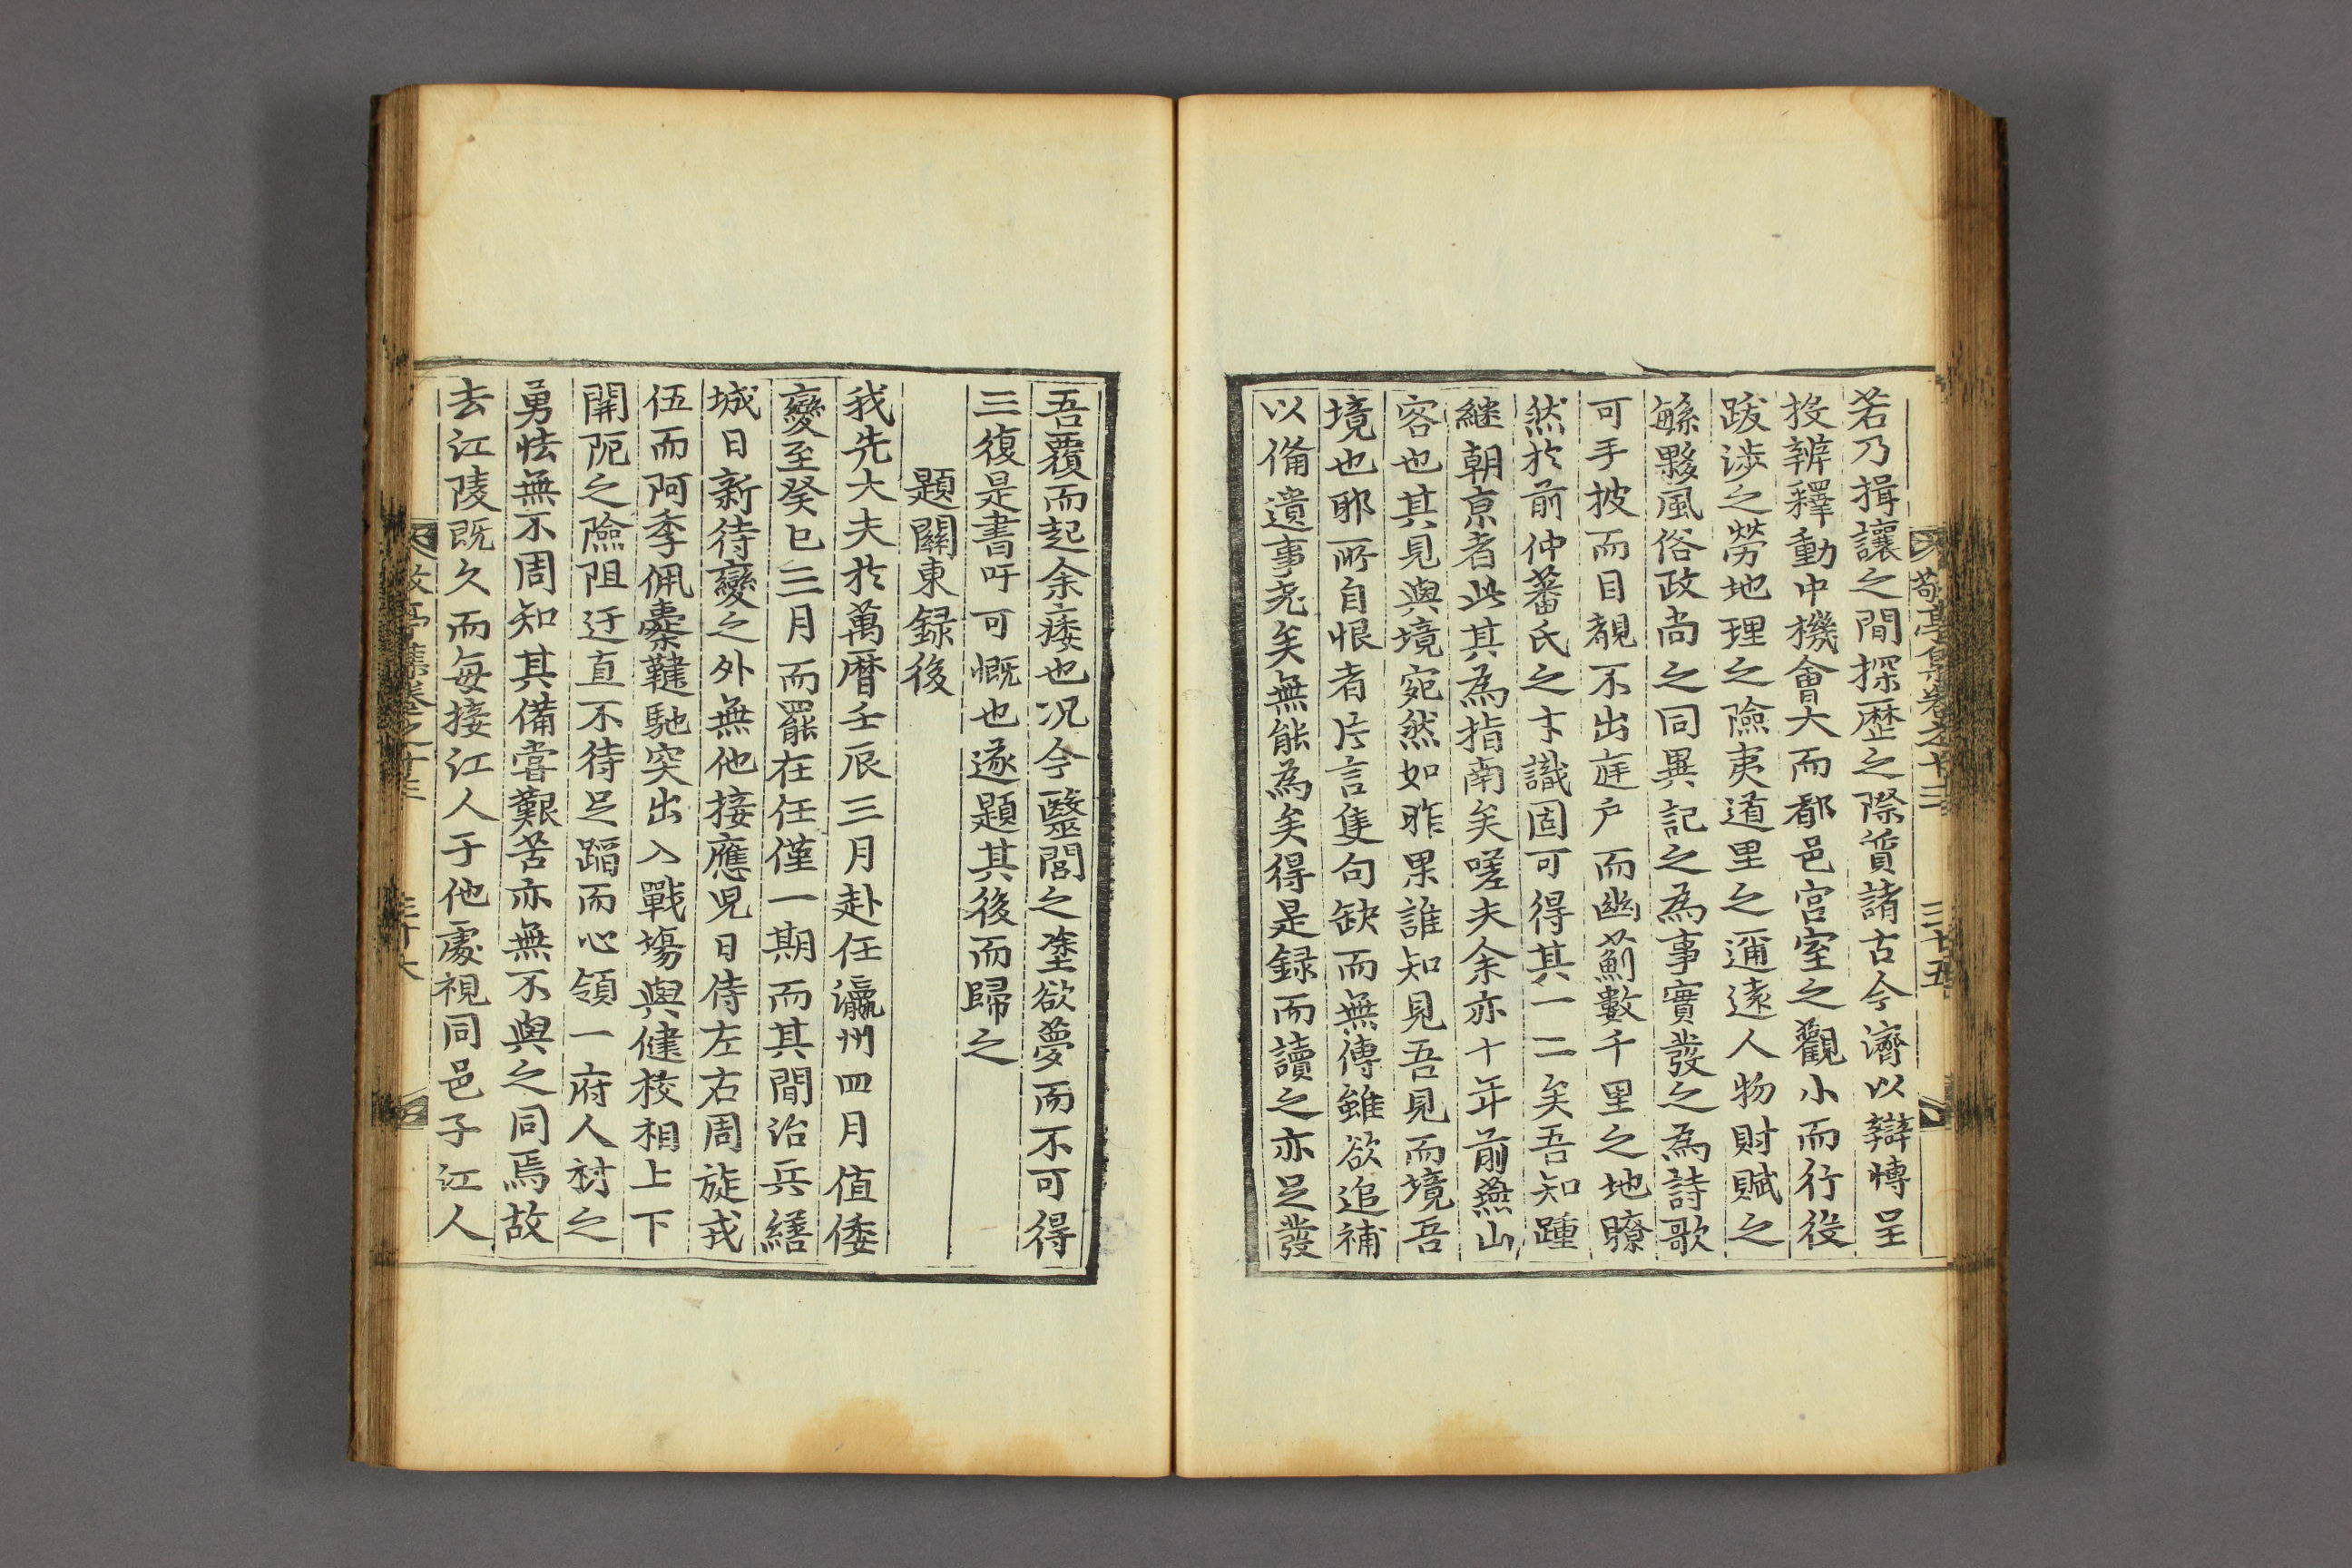 敬亭集卷之十三 三十五
若乃揖讓之間探歷之際質諸古今濟以辯博呈
投辨釋動中機會大而都邑宮室之觀小而行役
跋涉之勞地理之險夷道里之邇遠人物財賦之
繇夥風俗政尚之同異記之為事實發之為詩歌
可手披而目覩不出庭户而幽薊數千里之地瞭
然於前仲蕃氏之才識固可得其一二矣吾知踵
継朝京者此其為指南矣嗟夫余亦十年前燕山
客也其見與境宛然如昨果誰知見吾見而境吾
境也耶所自恨者片言隻句缺而無傳雖欲追補
以備遺事尭矣無能為矣得是録而讀之亦足發
吾覆而起余痿也况今醫閭之塗欲夢而不可得
三復是書吁可慨也遂題其後而歸之
題關東録後
我先大夫於萬曆壬辰三月赴任瀛州四月值倭
變至癸巳三月而罷在任僅一期而其間治兵繕
城日新待變之外無他接應児日侍左右周旋戎
伍而阿季佩櫜鞬馳突出入戰塲與健校相上下
開阨之險阻迂直不待足蹈而心領一府人材之
勇怯無不周知其備嘗艱苦亦無不與之同焉故
去江陵既久而每接江人于他處視同邑子江人
敬亭集卷之十三 三十六